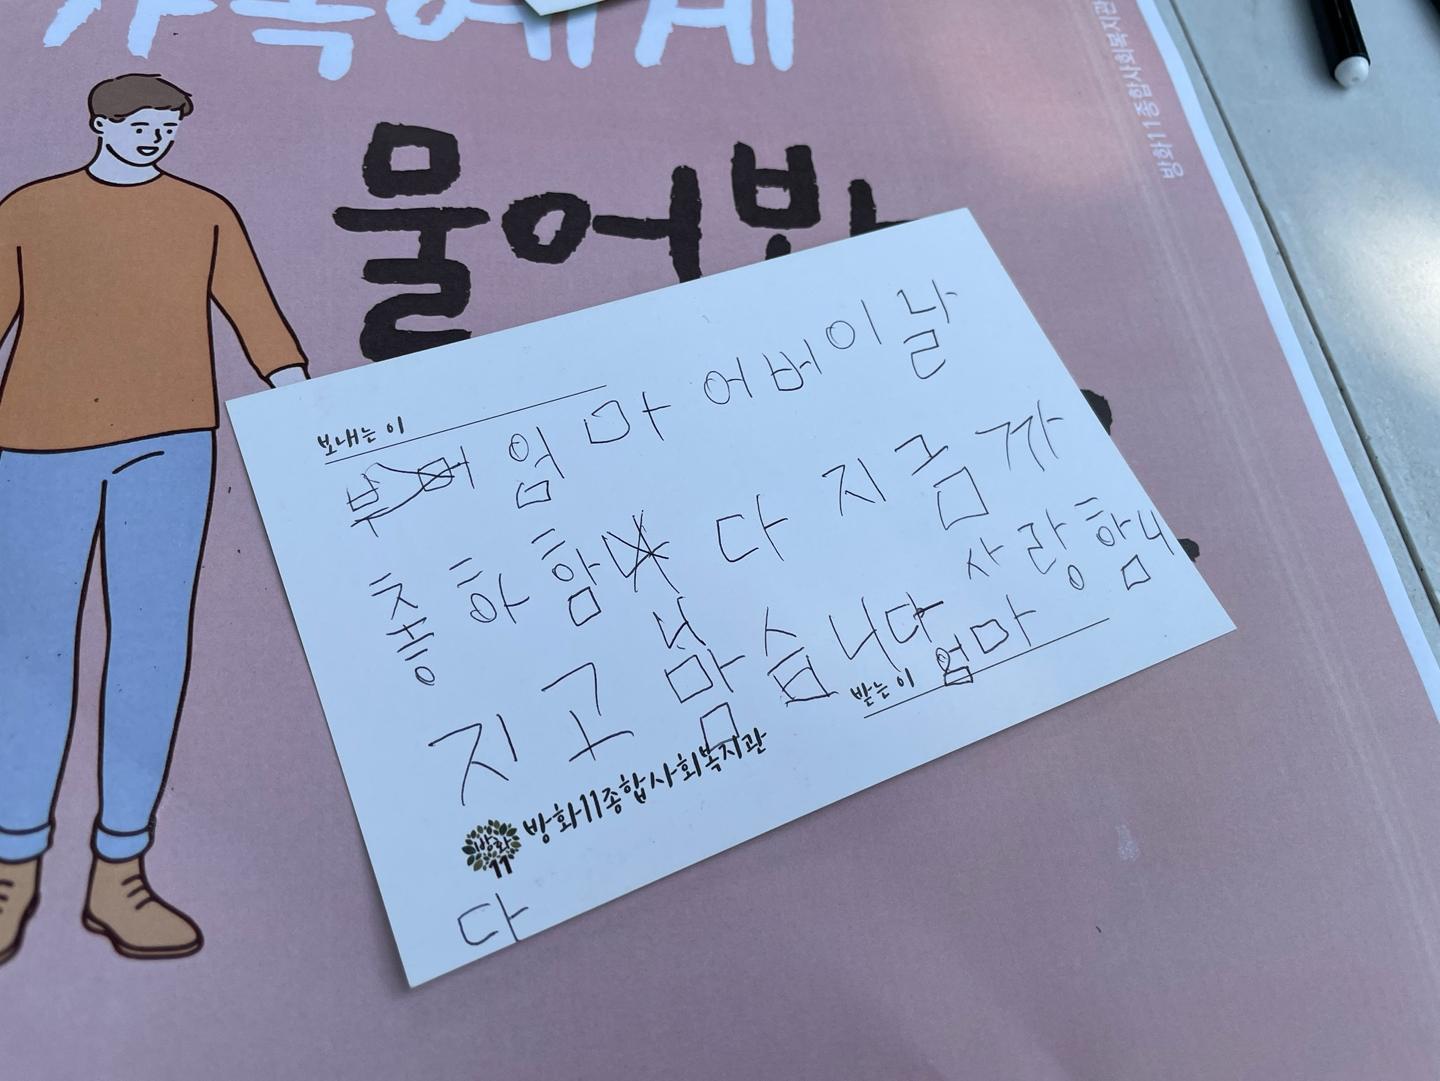 가족에게
물어봐
방화11종합사회복지관
보내는 이
엄마 어버이날
충하함니다 지금까
지고맘슴니다 사랑함니
받는 이 엄마
방화11
방화11종합사회복지관
다